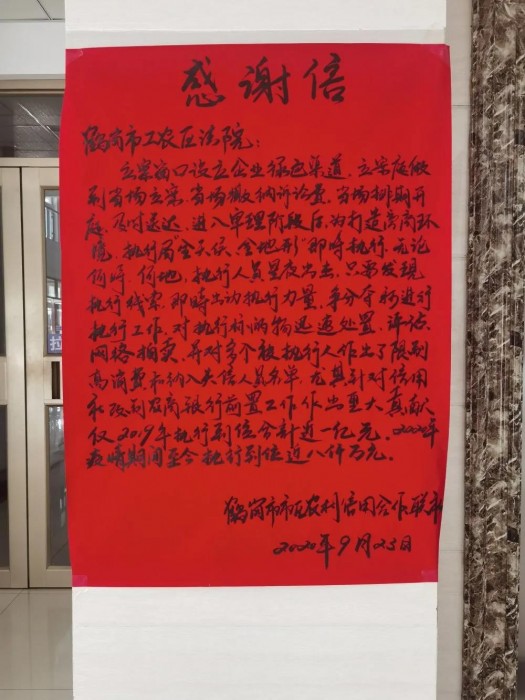 感谢信
鹤岗市工农区法院：
立案窗口设立企业绿色渠道，立案庭做
到当场立案，当场缴纳诉讼费，当场排期开
庭，及时送达，进入审理阶段后，为打造营商环
境，执行局“全天侯、全地形”即时执行，无论
何时、何地，执行人员星夜出击，只要发现
执行线索，即时出动执行力量，争分夺秒进行
执行工作，对执行标的物迅速处置、评估、
网络拍卖，并对多个被执行人作出了限制
高消费和纳入失信人员名单，尤其针对信用
社改制农商银行前置工作作出重大贡献，
仅2019年执行到位合计近一亿元，2020年
疫情期间至今执行到位近八仟万元。
鹤岗市市区农村信用合作联社
2020年9月25日
拉